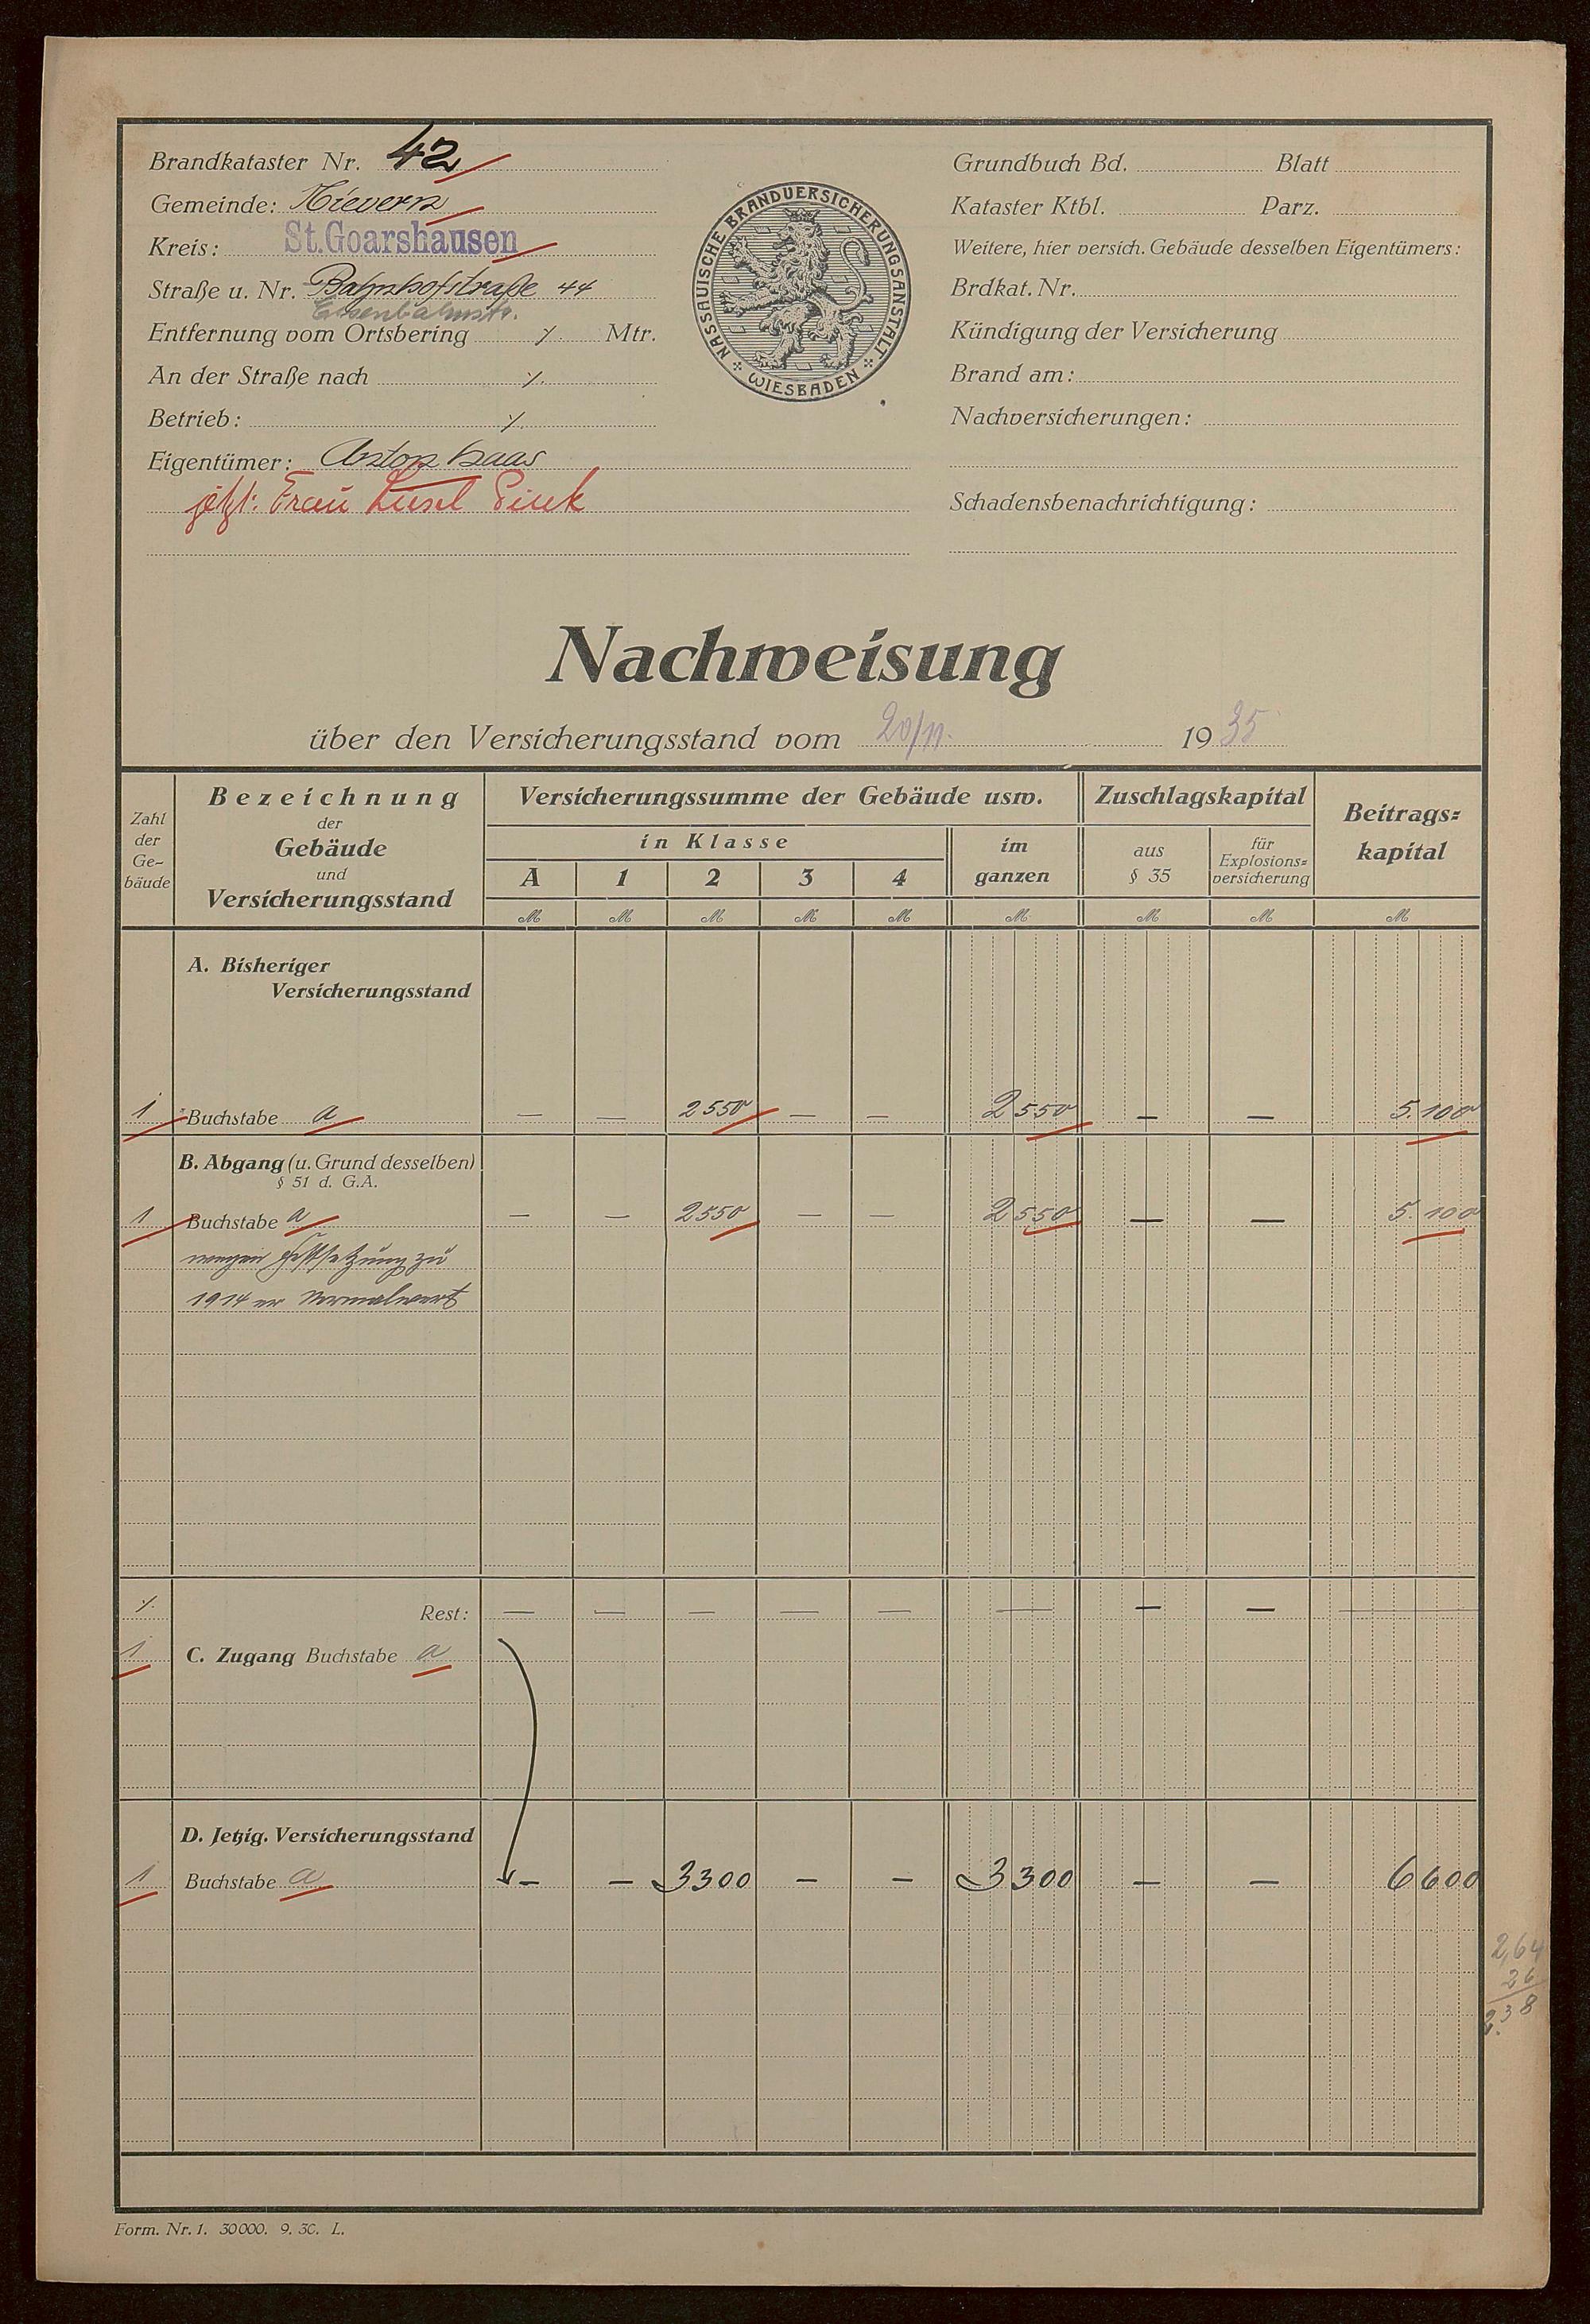 Brandkataster Nr. 42
Gemeinde: Nievern
Kreis: St. Goarshausen
Straße u. Nr. Bahnhofstraße 44
Eisenbahnstr.
Entfernung vom Ortsbering ⁒ Mtr.
An der Straße nach ⁒
Betrieb: ⁒
Eigentümer: Anton Haas
jetzt: Frau Liesel
NASSAUISCHE BRANDVERSICHERUNGSANSTALT
WIESBADEN
Grundbuch Bd. Blatt
Kataster Ktbl. Parz.
Weitere, hier versich. Gebäude desselben Eigentümers:
Brdkat. Nr.
Kündigung der Versicherung
Brand am:
Nachversicherungen:
Schadensbenachrichtigung:
Nachweisung
über den Versicherungsstand vom 20/11. 1935
Zahl der Ge- bäude
Bezeichnung
der
Gebäude
und
Versicherungsstand
Versicherungssumme der Gebäude usw.
in Klasse
A 1 2 3 4
im ganzen
Zuschlagskapital
aus § 35
für Explosions= versicherung
Beitrags= kapital
M M M M M M M M M
A. Bisheriger
Versicherungsstand
1 Buchstabe a — — 2550 — — 2550 — — 5.100
B. Abgang (u. Grund desselben)
§ 51 d. G.A.
1 Buchstabe a — — 2550 — — 2550 — — 5.100
wegen Festsetzung zu
1914er Normalwert
⁒ Rest: — — — — — — — — —
1 C. Zugang Buchstabe a
D. Jetzig. Versicherungsstand
1 Buchstabe a — — 3300 — — 3300 — — 6600
2,64
26
2.38
Form. Nr. 1. 30000. 9. 30. L.